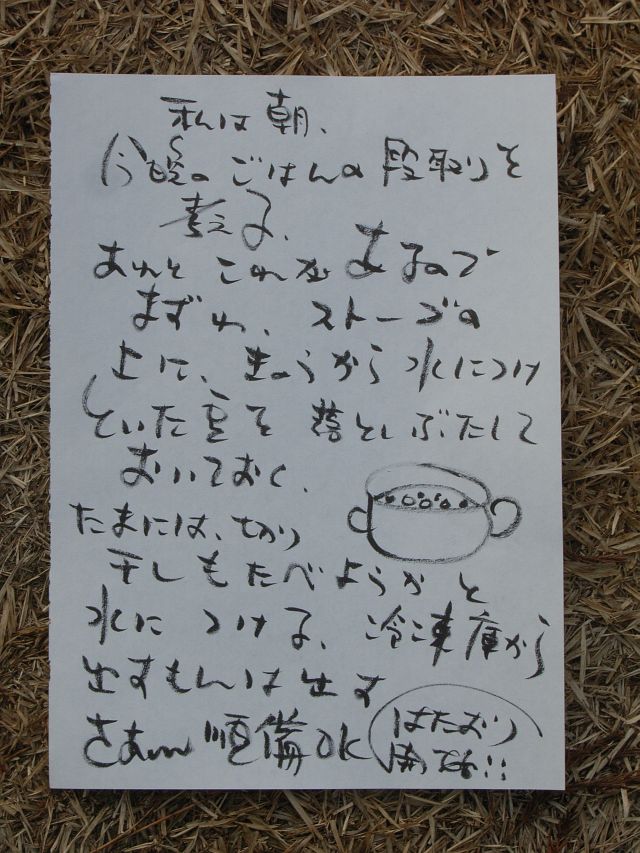 私は朝、
今晩のごはんの段取りを
考える、
あれと これが あるので
まずわ、ストーブの
上に、きのうから 水につけ
といた豆を 落としぶたして
おいておく、
たまには、切り
干しもたべようかと
水に つける、冷凍庫から
出すもんは出す
さあー 順備OK
はたおり
開始!!